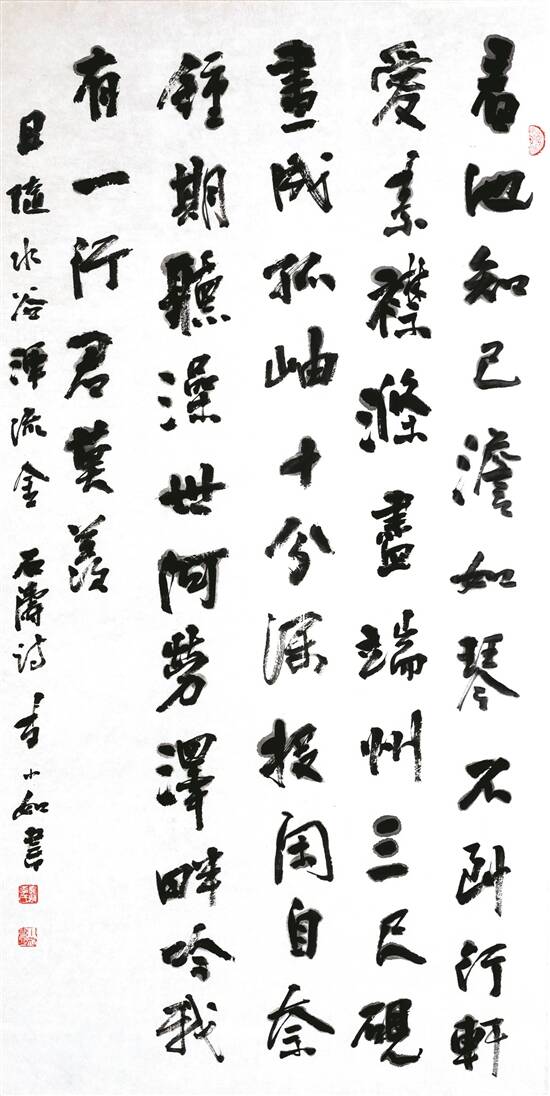 看他知己澹如琴不到行軒
愛素襟滌盡端州三尺硯
畫成孤岫十分深投閑自奈
鍾期聽澡世何勞澤畔吟我
有一行君莫羨
且隨水谷渾流金 石濤詩 李小如書